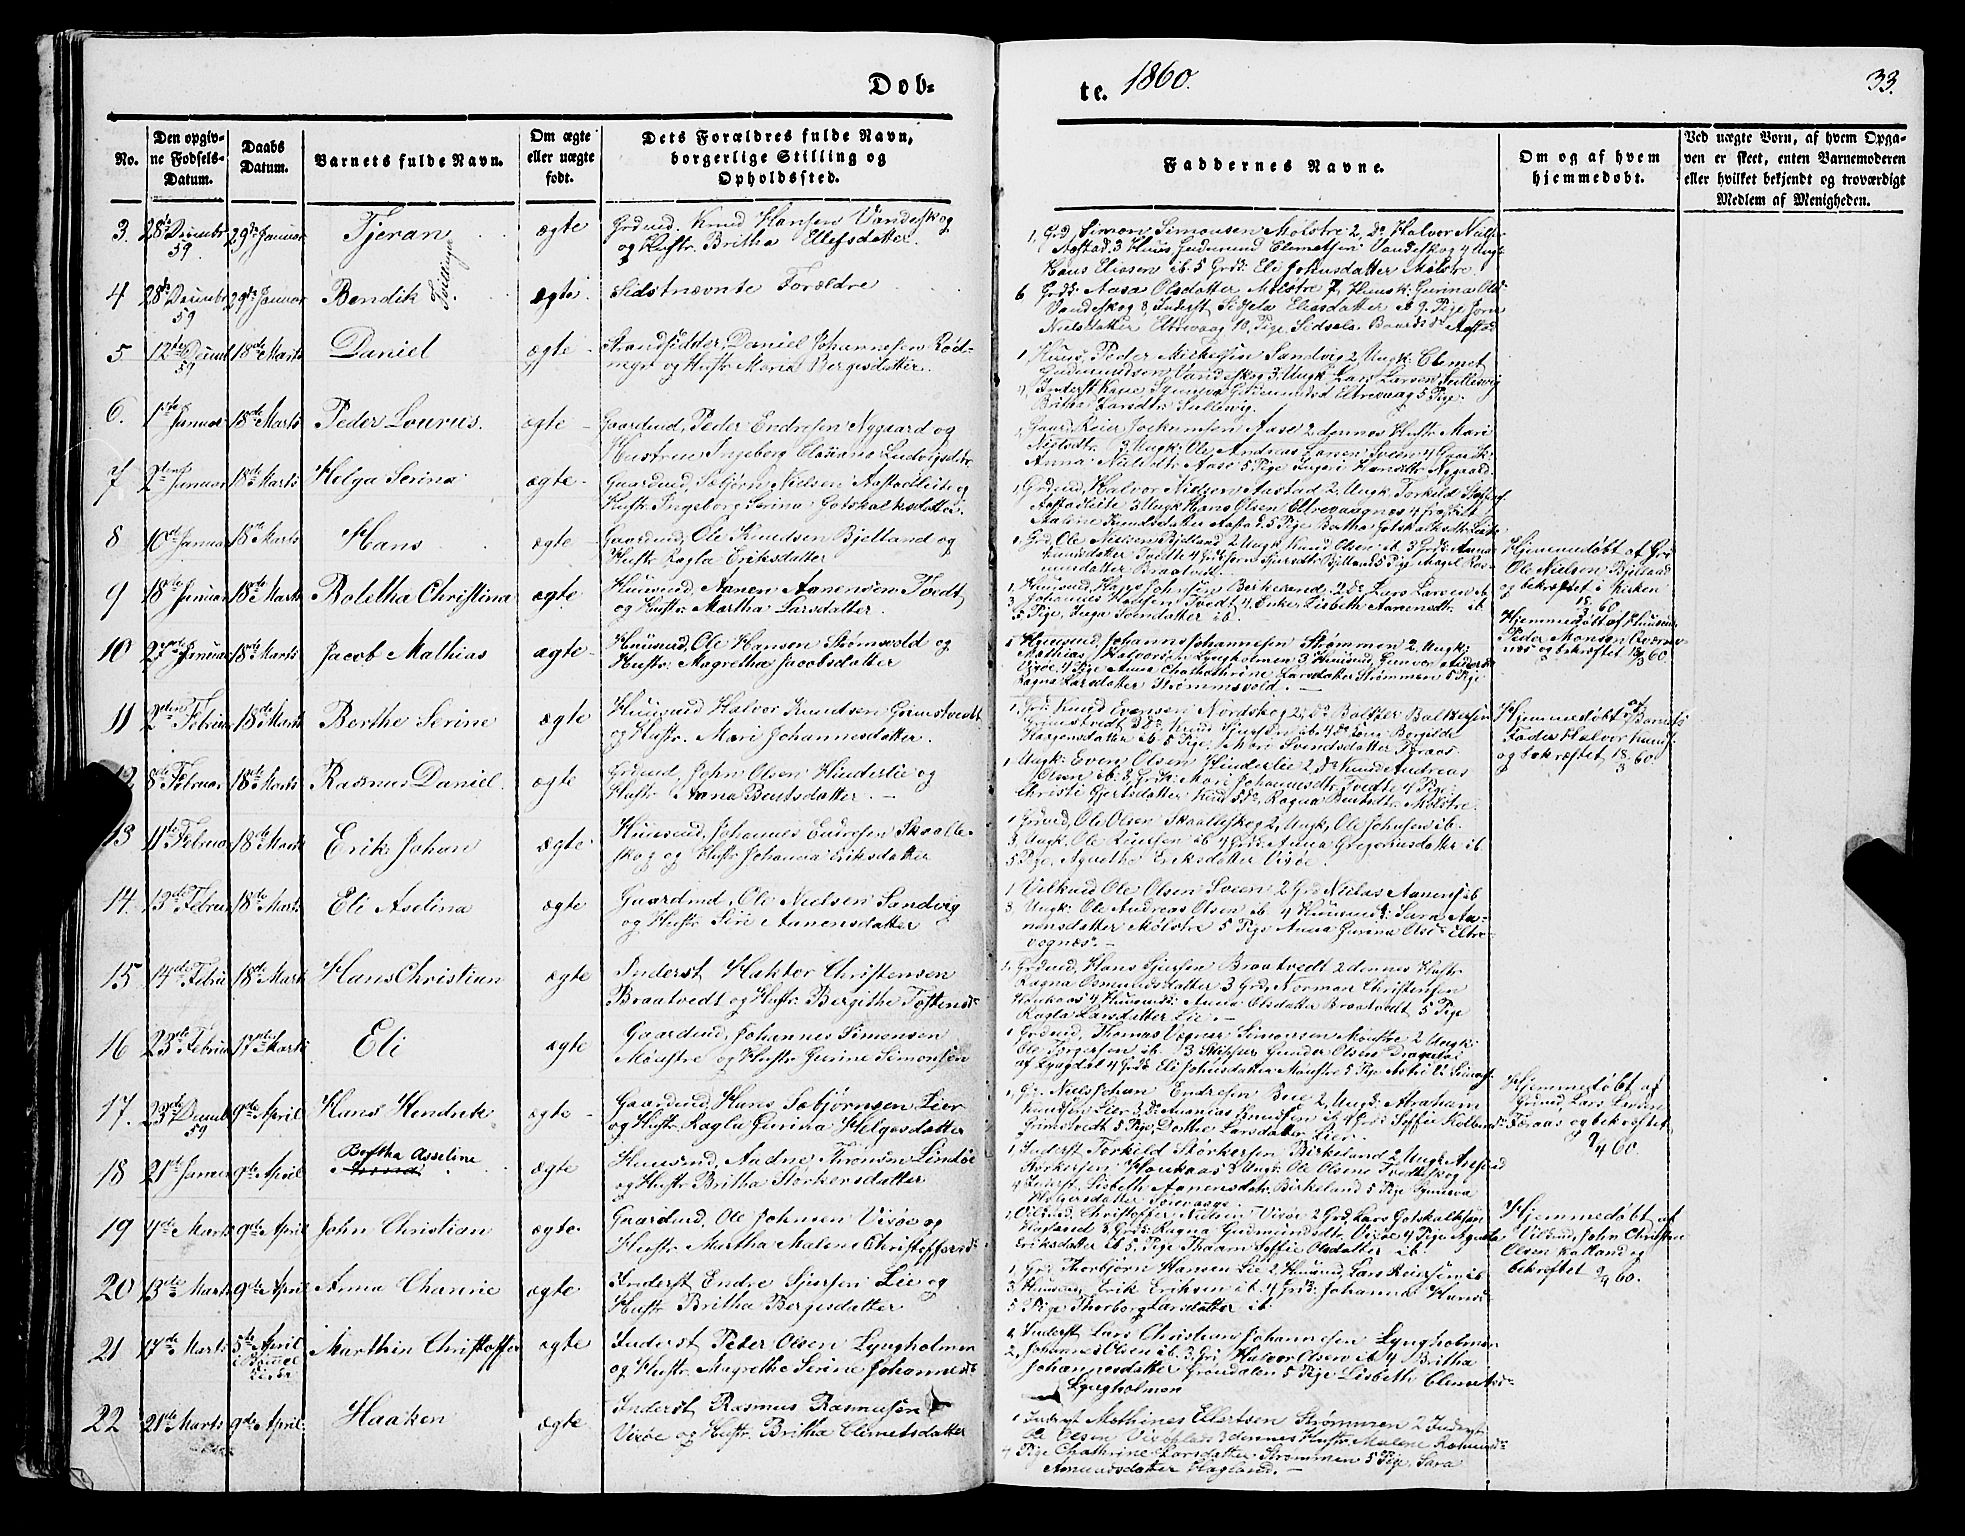 Dob-
te. 1860.
33.
No.
Den opgiv-
ne Fodsels-
Datum.
Daabs
Datum.
Barnets fulde Navn.
Om ægte
eller uægte
født.
Dets Forældres fulde Navn,
borgerlige Stilling og
Opholdssted.
Faddernes Navne.
Om og af hvem
hjemmedobt.
Ved uægte Born, af hvem Opga-
ven er skeet, enten Barnemoderen
eller hvilket bekjendt og troværdigt
Medlem af Menigheden.
3. 28de Decembr 59 29de Januar Tjeran Tvillinger ægte Grdmd. Knud Hansen Vandeskog
og Hustr. Britha Ellefsdatter.
1, Grd, Simon Simonsen Molstre 2, Do Halvor Niels
Aastad. 3 Huus Gudmund Clemetsen Vandeskog 4 Ungk
Hans Eliasen ib. 5 Grdk: Eli Johnsdatter Mølstre
4 28de Decembr 59 29de Januar Bendik ægte Sidstnævnte Forældre
6 Grdk: Aasa Olsdatter Mølstre 7, Huusk: Gurina Ols
Vandeskog 8, Inderst Sidsela Eliasdatter ib 9. Pige
Nielsdatter Eltrevaag 10, Pige, Sidsela Aastad
5 12te Decembr 59 18de Marts Daniel ægte Strandsidder, Daniel Johannesen Rød-
neset og Hustr Maria Bergesdatter.
1, Huus, Peder Mickelsen Sandvig 2, Ungk: Clemet
Gudmundsen, Vandeskog 3, Ungk Lars Larsen Sullevig
4, Inderst Kone Synneva Gudmundsd Eltrevaag 5 Pige
Britha Larsdtr Sullevig.
6. 1ste Januar 18de Marts Peder Lourus. ægte Gaardmd, Peder Endresen Nygaard og
Hustrue Ingeborg Elisiana Ludvigsdtr
1, Gaard, Reier Jochumsen Aase 2 dennes Hustr Mari
Nielsdtr. 3 Ungk: Ole Andreas Larsen Sveen 4 Gaardk:
Anna Nielsdtr Aase 5 Pige Inger Hansdtr Nygaard
7 2den Januar 18de Marts Helga Serina ægte Gaardmd, Tobjørn Nielsen Aastadleite og
Hustr. Ingeborg Serina Gotskalksdatter.
1, Grdmd, Halvor Nielsen Aastad 2, Ungk. Torkild
Aastadleite 3 Ungk Hans Olsen Eltrevaagnes 4
Malene Knudsdatter Aastad 5 Pige Bertha Gotskalksdtr Leite
8 10de Januar 18de Marts Hans ægte Gaardmd, Ole Knudsen Bjelland og
Hustr. Ragla Eriksdatter
1, Grd, Ole Nielsen Bjelland 2, Ungk Knud Olsen ib 3 Grdk: Anna
Knudsdatter Tvedt 4 Bjelland 5 Pige Magel Ras-
musdatter Braatvedt.
Hjemmedøbt af Grd
Ole Nielsen Bjelland
og bekræftet i Kirken
18/3 60
9 18de Januar 18de Marts Boletha Christina ægte Huusmd Aanen Aanensen Tvedt
og Hustr. Martha Larsdatter
1, Huusmd, Johnsen Birkeland 2 Do Lars Larsen ib
3 Johannes Hansen Tvedt 4, Enke, Lisbeth Aanensdtr. ib
5 Pige, Inga Svendsdatter ib.
Hjemmedøbt af Huusm
Peder Monsen
og bekræftet 18/3 60
10 27de Januar 18de Marts Jacob Mathias ægte Huusmd, Ole Hansen Strømsvold og
Hustr. Magretha Jacobsdatter
1 Huusmd, Johannes Johannesen Strømmen 2 Ungk:
Mathias Halvorsen Lyngholmen 3 Huusmd, Gunvor Andersdr
Visøe 4 Pige Anna Chathathrine Larsdatter Strømmen 5 Pige
Ragna Larsdatter Strømmsvold.
11 2den Februar 18de Marts Berthe Serine ægte Huusmd Halvor Knudsen Grimstvedt
og Hustr. Mari Johannesdatter.
1, Grd Knud Evensen Nordskog 2, Do Baltzer Baltzersen
Grimstvedt 3 Do Knud Sjursen ib 4 Do Borgilde
5 Pige, Mari Svendsdatter Føraas
Hjemmedøbt af Barnets
Fader Halvor Knuds
og bekræftet 18/3 60
12 8de Februar 18de Marts Rasmus Daniel ægte Grdmd, John Olsen Hinderlie og
Hustr Anna Bentsdatter.
1 Ungk: Even Olsen Hinderlie 2 Do Knud Andreas
Olsen ib. 3 Grdk: Mari Johannesdtr Tvedte 4 Pige:
Christi Gjertsdatter 5 Do, Ragna Bentsdtr Mølstre
13 11te Februar 18de Marts Erik Johan ægte Huusmd, Johannes Endresen Skaalle-
skog og Hustr Johanna Eriksdatter
1 Grdmd, Ole Olsen Skaalleskog 2, Ungk, Ole Johnsen ib.
3, Ungk, Ole Knudsen ib 4 Grdk: Anna Gregoriusdatter ib
5 Pige, Agnethe Eriksdatter Visøe.
14. 13de Februar 18de Marts Eli Aselina ægte Gaardmd, Ole Nielsen Sandvig
og Hustr. Siri Aanensdatter
1 Vilkmd Ole Olsen Sveen 2 Grd Niclas Aanens ib
3 Ungk: Ole Andreas Olsen ib 4 Huusmd k: Sara Aa-
nensdatter Mølstre 5 Pige Anna Gurina Olsdr Eltre-
vognæs.
15 14de Februar 18de Marts Hans Christian ægte Inderst Haktor Christensen
Braatvedt og Hustr. Bergithe Tostensdr
1, Grdmd, Hans Sjursen Braatvedt 2 dennes Hustr
Ragna Osmundsdatter 3 Grd, Norman Christensen
Haukaas 4 Huusmdk: Anna Olsdatter Braatvedt 5 Pige
Ragla Larsdatter Lie.
16 23de Februar 17de Marts Eli ægte Gaardmd, Johannes Simonsen
Mølstre og Hustr Gurine Simonsen
1 Grdmd, Thomas Vognær Simonsen Moustre 2 Ungk:
Ole Birgersen ib. 3 Skipper Gunder Olsen
af Lyngdal 4 Grdk Eli Johnsdatter Moustre 5 Pige
17. 23de Decembr 59 9de April Hans Hendrik ægte Gaardmd, Hans Tobjørnsen Lier
og Hustr. Ragla Gurina Helgesdatter
1, Grd Niels Johan Endresen Bue 2, Ungk: Abraham
Knudsen Lier 3, Do Ananias Knudsen ib 4 Grdk: Soffie
Grimstvedt 5 Pige, Dorthe Larsdatter Lier.
Hjemmedøbt af
Grdmd, Lars Larsen
Føraas og bekræftet
9/4 60.
18 21de Januar 9de April Bertha Asseline ægte Huusmd, Aadne Thronsen Lindøe
og Hustr Britha Størkersdatter
1 Inderst Torkild Størkersen Birkeland 2 Ungk:
Størkersen Haukaas 3 Ungk: Ole Olsen Tvedteskog
4 Inderst, Lisbeth Aanensdatr. Birkeland 5 Pige Synneva
Holgersdatter
19 4de Marts 9de April John Christian ægte Gaardmd, Ole Johnsen Visøe og
Hustr Martha Malene Christoffersdr
1, Vilkmd, Christoffer Nielsen Visøe 2 Grd, Lars Gotskalksen
Hagland 3 Grdk: Ragna Gudmundsdtr. Visøe 4 Pige Agnethe
Eriksdatter ib 5, Pige Soffie Olsdatter ib.
Hjemmedøbt af
Vilkmd, John Christen
Olsen Hatland og
bekræftet 9/4 60.
20 13de Marts 9de April Anna Channe ægte Inderst Endre Sjursen Lie og
Hustr Britha Bergesdatter
1, Grd, Thorbjørn Hansen Lie 2 Huusmd, Lars Reiersen ib
3, Huusmd, Erik Eriksen ib. 4 Grdk: Johanna Hansd
5 Pige Thorborg Larsdatter ib.
21 17de Marts 5te April Marthin Christoffer ægte Inderst Peter Olsen Lyngholmen
og Hustr. Magrethe Serine Johannesdr
1, Inderst, Lars Christian Johannesen Lyngholmen
2, Johannes Olsen ib. 3, Grd, Halvor Olsen ib 4 Britha
Johannesdatter Grøndalen 5 Pige Lisbeth Clemetsdr
Lyngholmen
22 21de Marts 9de April Haaken ægte Inderst, Rasmus Rasmusen
Visøe og Hustr. Britha Clemetsdatter
1 Inderst Mathines Ellertsen Strømmen 2 Inderst
Ole Olsen 3 dennes Hustr Malene Rasmusdr
4 Pige Chathrine Larsdatter Strømmen 5 Pige, Sara
Amundsdatter Hagland.